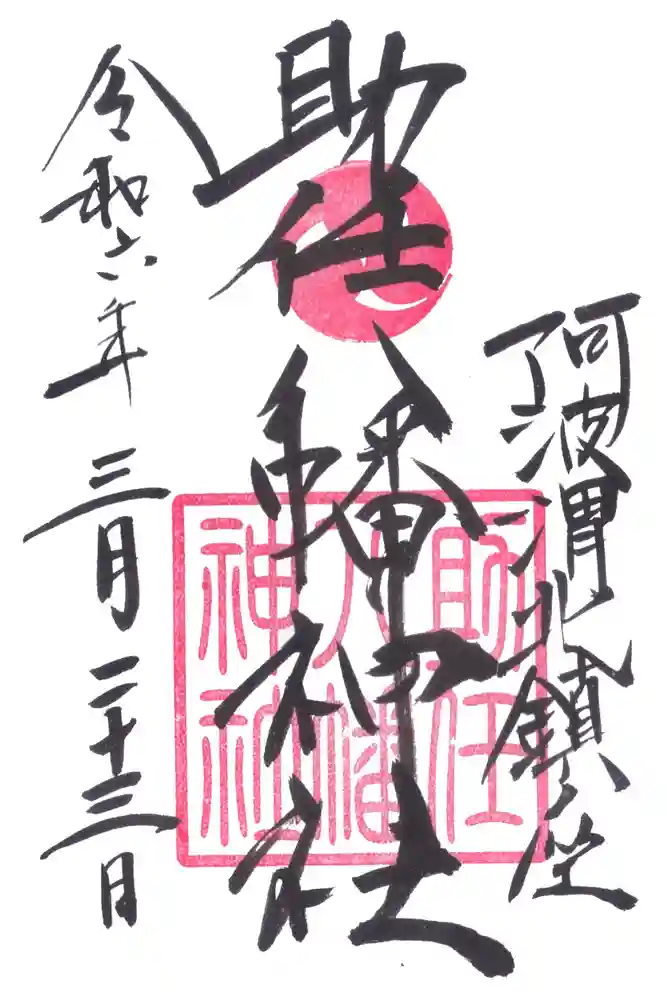 阿波渭北鎮坐
助任八幡神社
令和六年 三月 二十三日
助任
八幡
神社